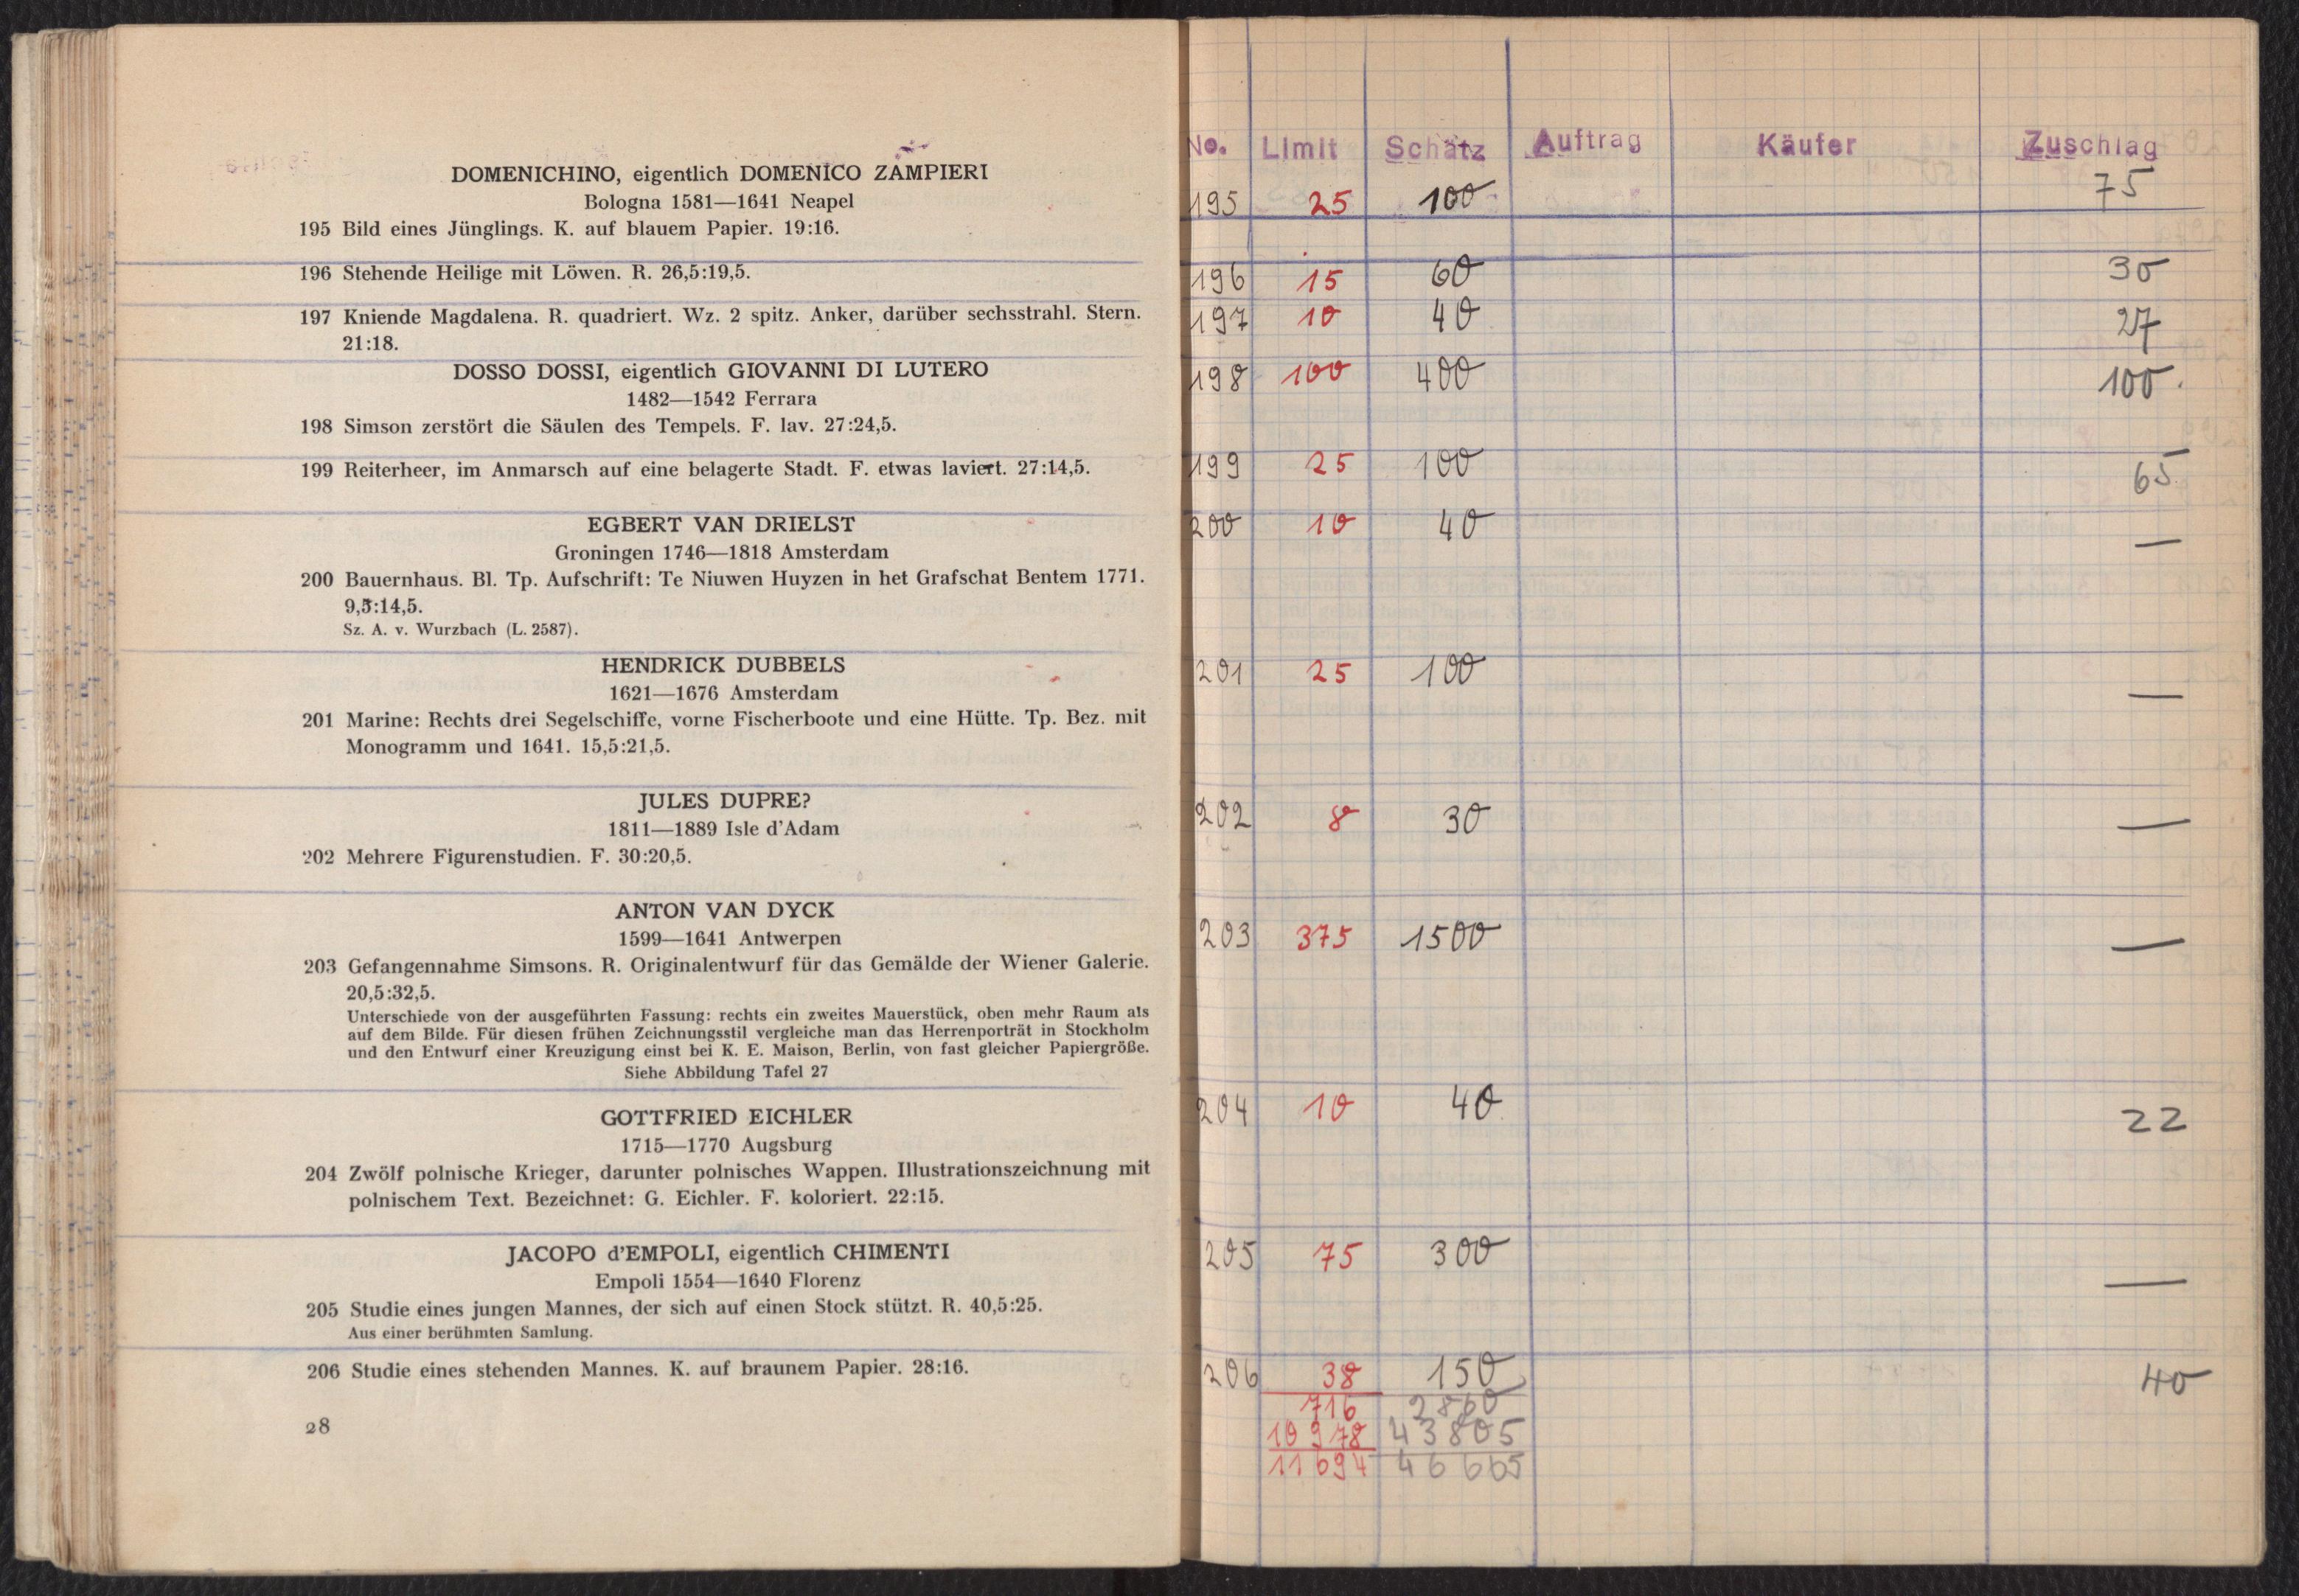 DOMENICHINO, eigentlich DOMENICO ZAMPIERI
Bologna 1581—1641 Neapel
195 Bild eines Jünglings. K. auf blauem Papier. 19:16.
196 Stehende Heilige mit Löwen. R. 26,5:19,5.
197 Kniende Magdalena. R. quadriert. Wz. 2 spitz. Anker, darüber sechsstrahl. Stern.
21:18.
DOSSO DOSSI, eigentlich GIOVANNI DI LUTERO
1482—1542 Ferrara
198 Simson zerstört die Säulen des Tempels. F. lav. 27:24,5.
199 Reiterheer, im Anmarsch auf eine belagerte Stadt. F. etwas laviert. 27:14,5.
EGBERT VAN DRIELST
Groningen 1746—1818 Amsterdam
200 Bauernhaus. Bl. Tp. Aufschrift: Te Niuwen Huyzen in het Grafschat Bentem 1771.
9,5:14,5.
Sz. A. v. Wurzbach (L. 2587).
HENDRICK DUBBELS
1621—1676 Amsterdam
201 Marine: Rechts drei Segelschiffe, vorne Fischerboote und eine Hütte. Tp. Bez. mit
Monogramm und 1641. 15,5:21,5.
JULES DUPRE?
1811—1889 Isle d'Adam
202 Mehrere Figurenstudien. F. 30:20,5.
ANTON VAN DYCK
1599—1641 Antwerpen
203 Gefangennahme Simsons. R. Originalentwurf für das Gemälde der Wiener Galerie.
20,5:32,5.
Unterschiede von der ausgeführten Fassung: rechts ein zweites Mauerstück, oben mehr Raum als
auf dem Bilde. Für diesen frühen Zeichnungsstil vergleiche man das Herrenporträt in Stockholm
und den Entwurf einer Kreuzigung einst bei K. E. Maison, Berlin, von fast gleicher Papiergröße.
Siehe Abbildung Tafel 27
GOTTFRIED EICHLER
1715—1770 Augsburg
204 Zwölf polnische Krieger, darunter polnisches Wappen. Illustrationszeichnung mit
polnischem Text. Bezeichnet: G. Eichler. F. koloriert. 22:15.
JACOPO d'EMPOLI, eigentlich CHIMENTI
Empoli 1554—1640 Florenz
205 Studie eines jungen Mannes, der sich auf einen Stock stützt. R. 40,5:25.
Aus einer berühmten Samlung.
206 Studie eines stehenden Mannes. K. auf braunem Papier. 28:16.
28
No. Limit Schätz Auftrag Käufer Zuschlag
195 25 100 75
196 15 60 30
197 10 40 27
198 100 400 100.
199 25 100 65
200 10 40 —
201 25 100 —
202 8 30 —
203 375 1500 —
204 10 40 22
205 75 300 —
206 38 150 40
716 2860
10978 43805
11694 46665